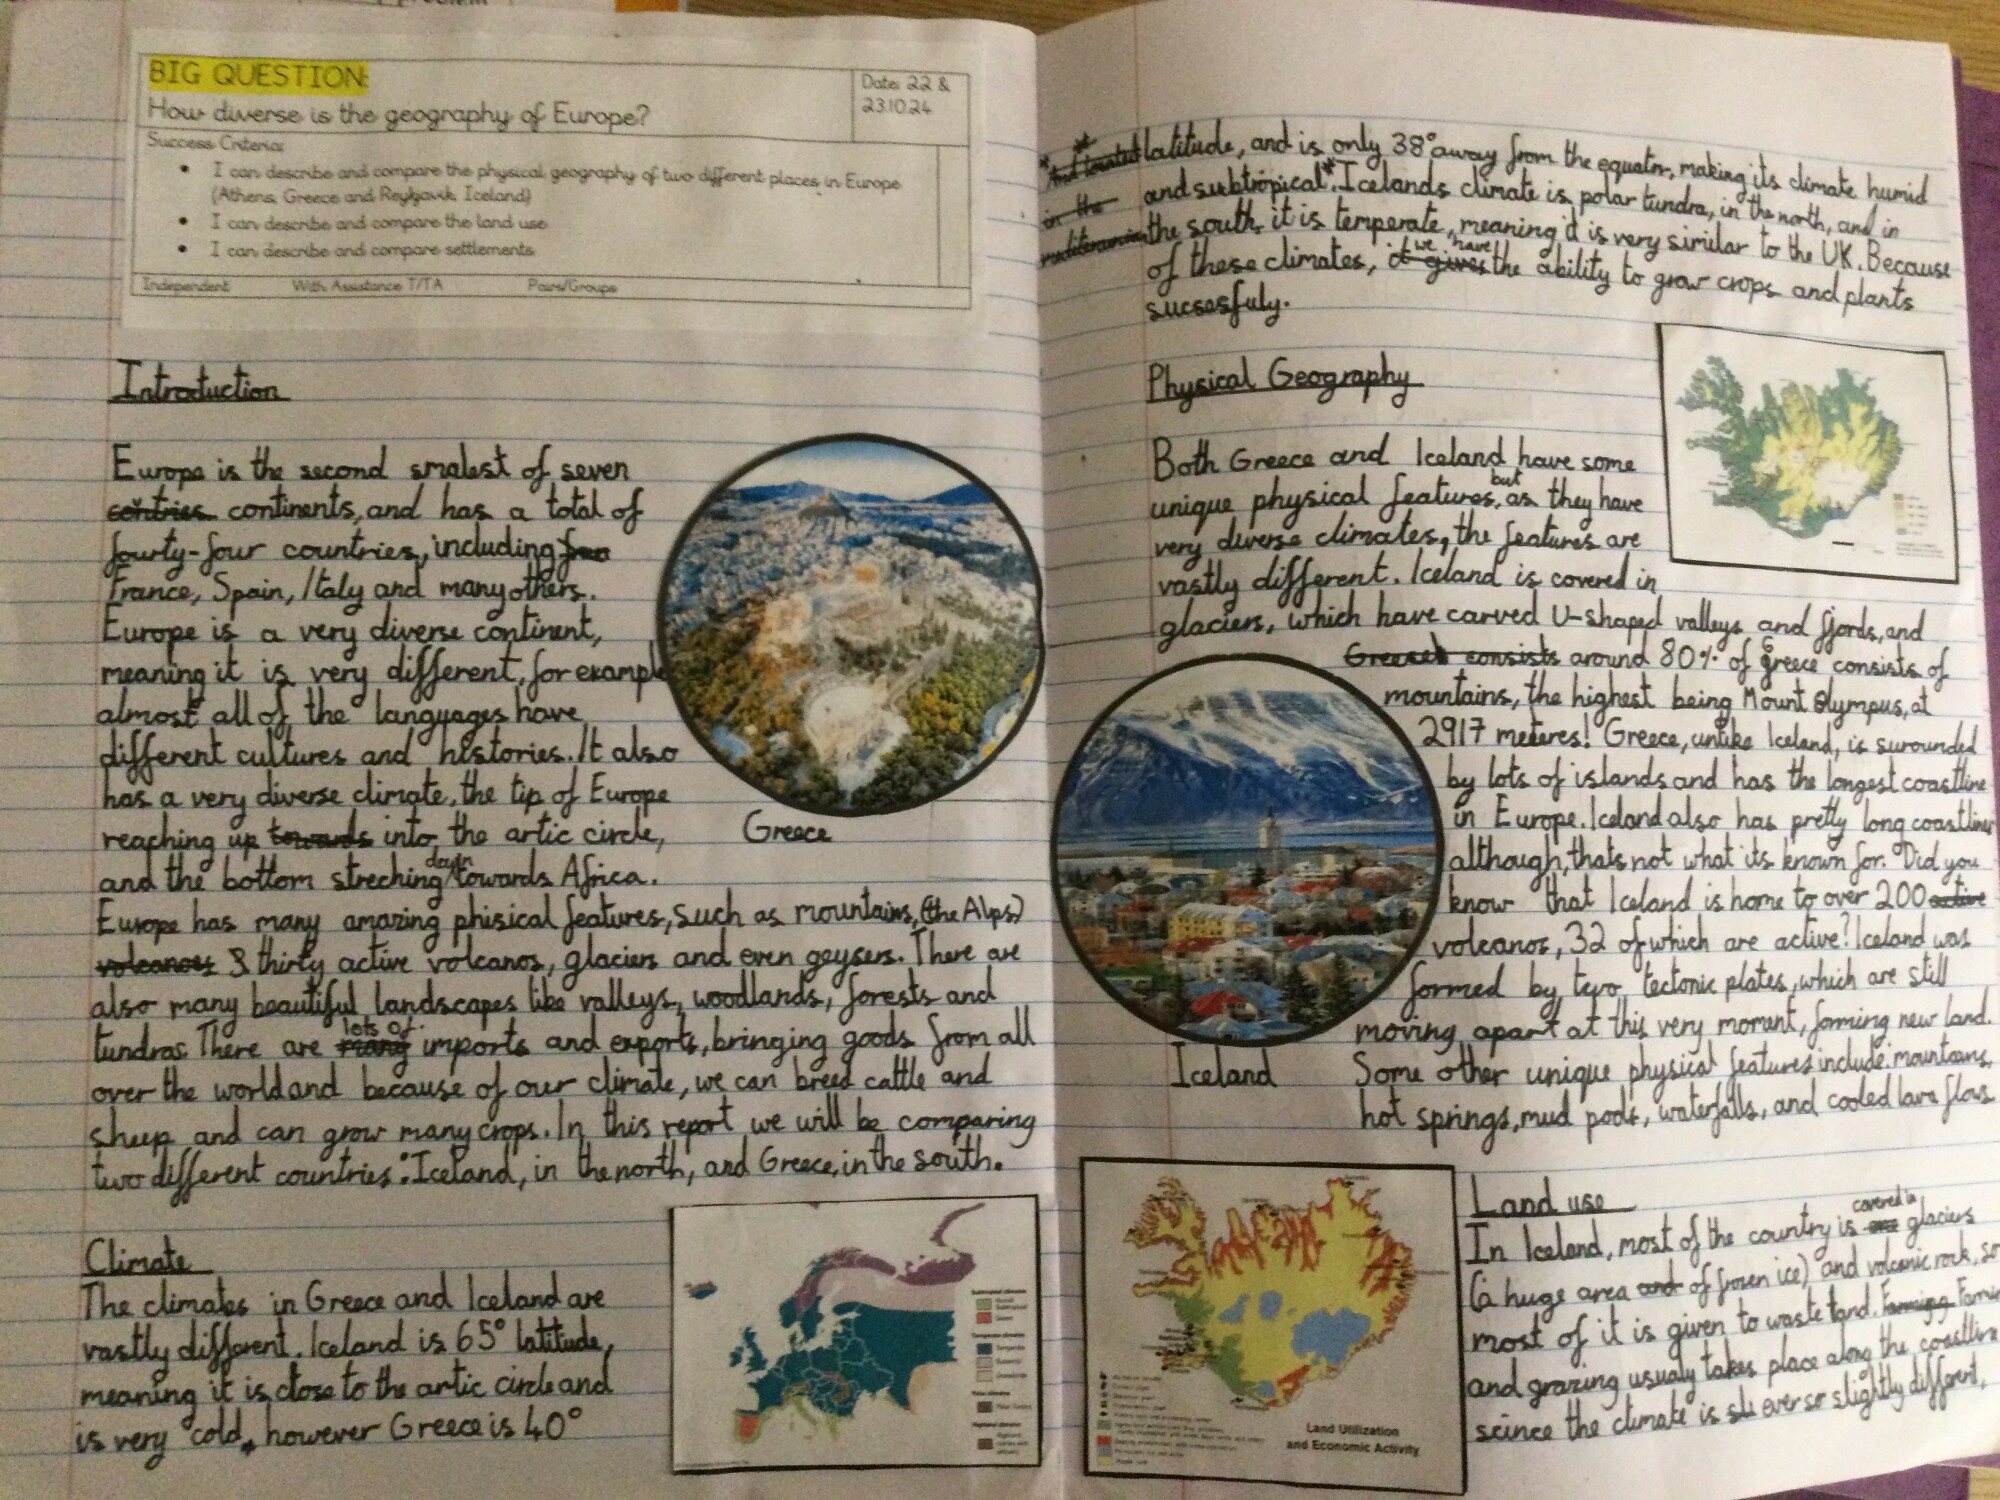 BIG QUESTION:
How diverse is the geography of Europe?
Date: 22 &
23.10.24
Success Criteria:
• I can describe and compare the physical geography of two different places in Europe
(Athens, Greece and Reykjavik, Iceland)
• I can describe and compare the land use
• I can describe and compare settlements
Independent With Assistance T/TA Pairs/Groups
Introduction
Europe is the second smalest of seven
continents, and has a total of
fourty-four countries, including
France, Spain, Italy and many others.
Europe is a very diverse continent,
meaning it is very different, for example
almost all of the languages have
different cultures and histories. It also
has a very diverse climate, the tip of Europe
reaching up towards into the artic circle,
and the bottom streching down towards Africa.
Europe has many amazing phisical features, such as mountains, (the Alps)
volcanoes & thirty active volcanos, glaciers and even geysers. There are
also many beautiful landscapes like valleys, woodlands, forests and
tundras. There are many lots of imports and exports, bringing goods from all
over the world and because of our climate, we can breed cattle and
sheep and can grow many crops. In this report we will be comparing
two different countries: Iceland, in the north, and Greece, in the south.
Greece
Climate
The climates in Greece and Iceland are
vastly different. Iceland is 65° latitude,
meaning it is close to the artic circle and
is very cold, however Greece is 40°
* And located latitude, and is only 38° away from the equator, making its climate humid
in the and subtropical*. Icelands climate is polar tundra, in the north, and in
the south, it is temperate, meaning it is very similar to the UK. Because
of these climates, it gives we have the ability to grow crops and plants
sucsesfuly.
Physical Geography
Both Greece and Iceland have some
unique physical features, but as they have
very diverse climates, the features are
vastly different. Iceland is covered in
glaciers, which have carved U-shaped valleys and fjords, and
consists around 80% of Greece consists of
mountains, the highest being Mount Olympus, at
2917 meteres! Greece, unlike Iceland, is surounded
by lots of islands and has the longest coastline
in Europe. Iceland also has pretty long coastlines
although, thats not what its known for. Did you
know that Iceland is home to over 200 active
volcanos, 32 of which are active? Iceland was
formed by two tectonic plates, which are still
moving apart at this very moment, forming new land.
Some other unique physical features include: mountains,
hot springs, mud pods, waterfalls, and cooled lava flows.
Iceland
Land use
In Iceland, most of the country is covered in glaciers
(a huge area and of frozen ice) and volcanic rock, so
most of it is given to waste land. Farming
and grazing usualy takes place along the coastline
scince the climate is ever so slightly different,
Land Utilization
and Economic Activity